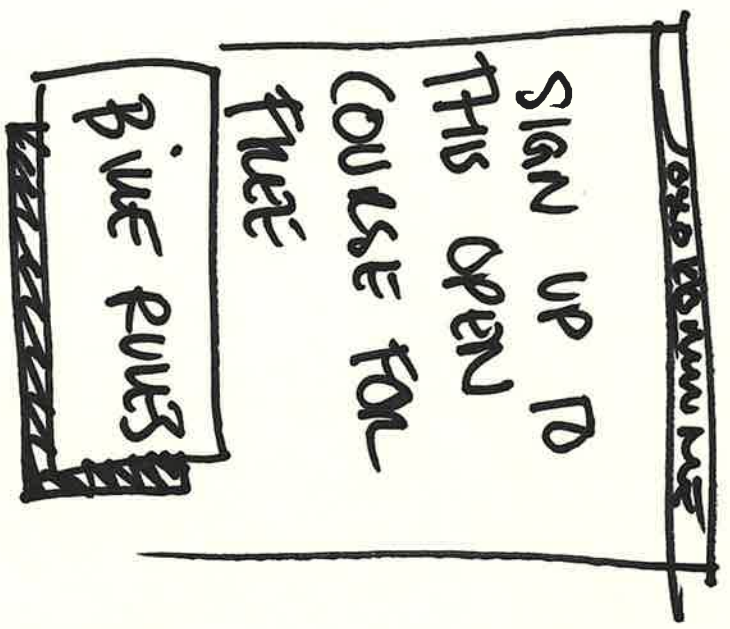 SIGN UP TO
THIS OPEN
COURSE FOR
FREE
BIKE RULES